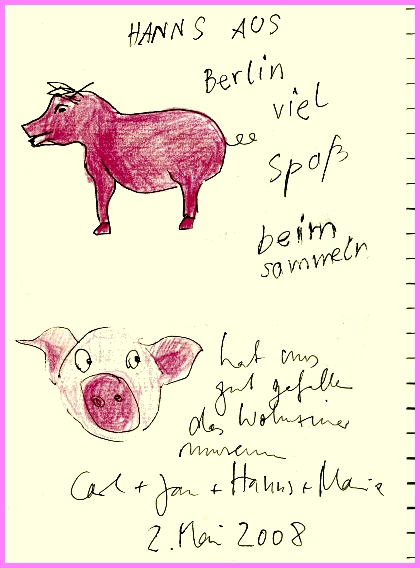 HANNS AUS
Berlin
viel
Spoß
beim
sammeln
hat uns
gut gefallen
das
museum
Carl + Jan + Hanns + Marie
2. Mai 2008